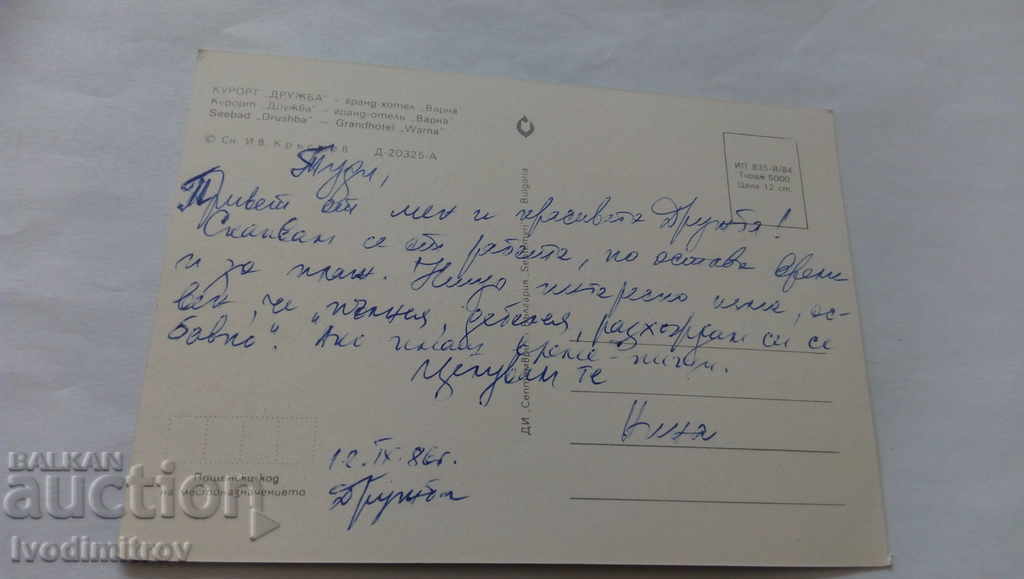 КУРОРТ „ДРУЖБА" – гранд-хотел „Варна"
Курорт „Дружба" – гранд-отель „Варна"
Seebad „Drushba" – Grandhotel „Warna"
© Сн. Ив. Кръстев Д-20325-А
ИП 835-II/84
Тираж 5000
Цена 12 ст.
Туди,
Привет от мен и красивата Дружба!
Скапвам се от работа, но остава време
и за плаж. Нищо интересно няма, ос-
вен, че „пълнея, дебелея, разхождам си се
бавно". Ако имаш време – пиши.
Целувам те
Нина
12.IX.86г.
Дружба
Пощенски код
на местоназначението
ДИ „Септември" България „Septemvri" Bulgaria
BALKAN
auction
Ivodimitrov